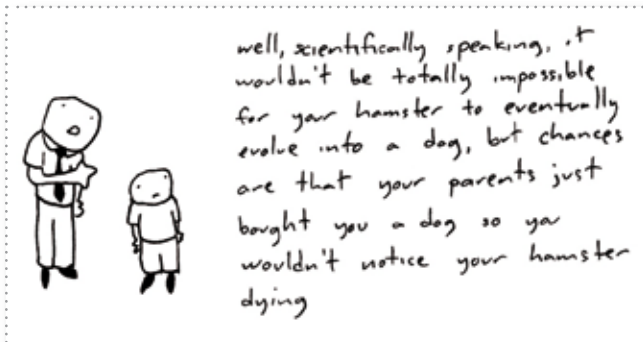 well, scientifically speaking, it
wouldn't be totally impossible
for your hamster to eventually
evolve into a dog, but chances
are that your parents just
bought you a dog so you
wouldn't notice your hamster
dying